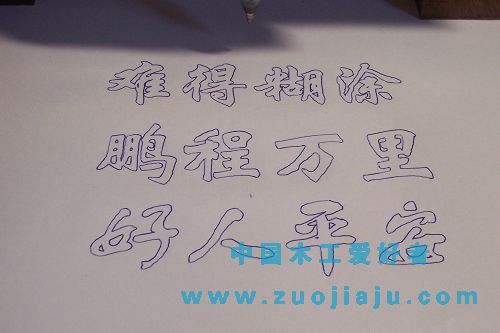 难得糊涂
鹏程万里
好人平安
中国木工爱好者
www.zuojiaju.com